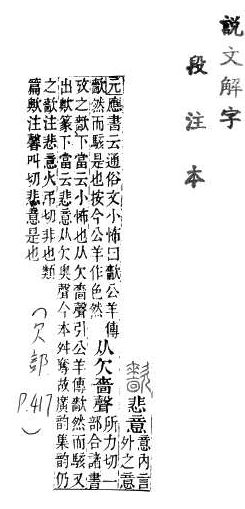 說文解字
段注本
㱇 悲意 意內言
外之意
元應書云通俗文小怖曰㱇公羊傳
㱇然而駭是也按今公羊作色然
从欠嗇聲 所力切一
部合諸書
攷之㱇下當云小怖也从欠嗇聲引公羊傳㱇然而駭又
出篆下當云悲意从欠奧聲今本舛奪故廣韵集韵仍
之㱇注悲意火吊切非也類
篇注馨叫切悲意是也
(欠部 P.417)